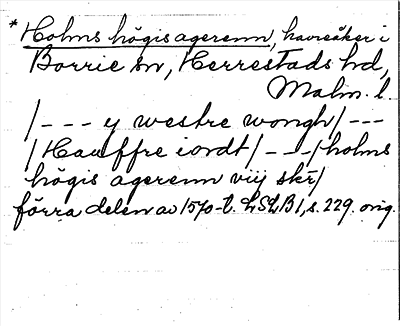 * Holms högis agerenn, havreåker i
Borrie sn, Herrestads hd,
Malm. l.
/--- y westre wongh/---
/Hauffre iordt/---/holms
högis agerenn viij skr/
förra delen av 1570-t. LSLB1, s. 229. orig.